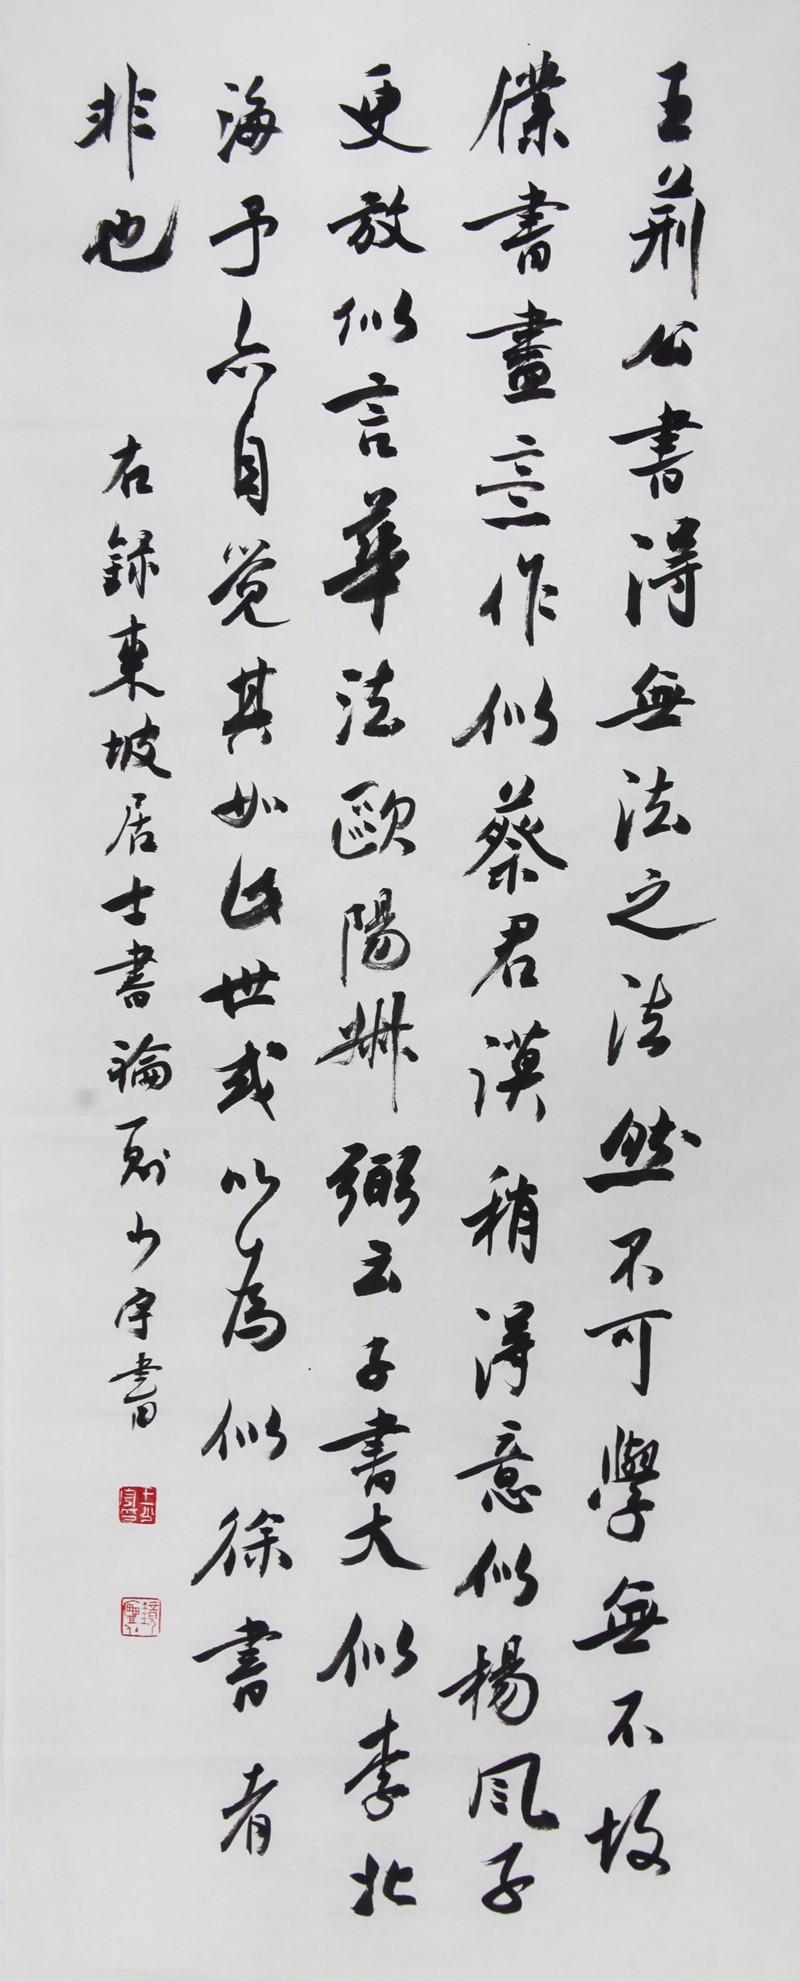 王荊公書得無法之法然不可學無不故
僕書盡意作似蔡君謨稍得意似楊風子
更放似言華法歐陽叔弼云子書大似李北
海予亦自覺其如此世或以為似徐書者
非也
右録東坡居士書論一則少宇書